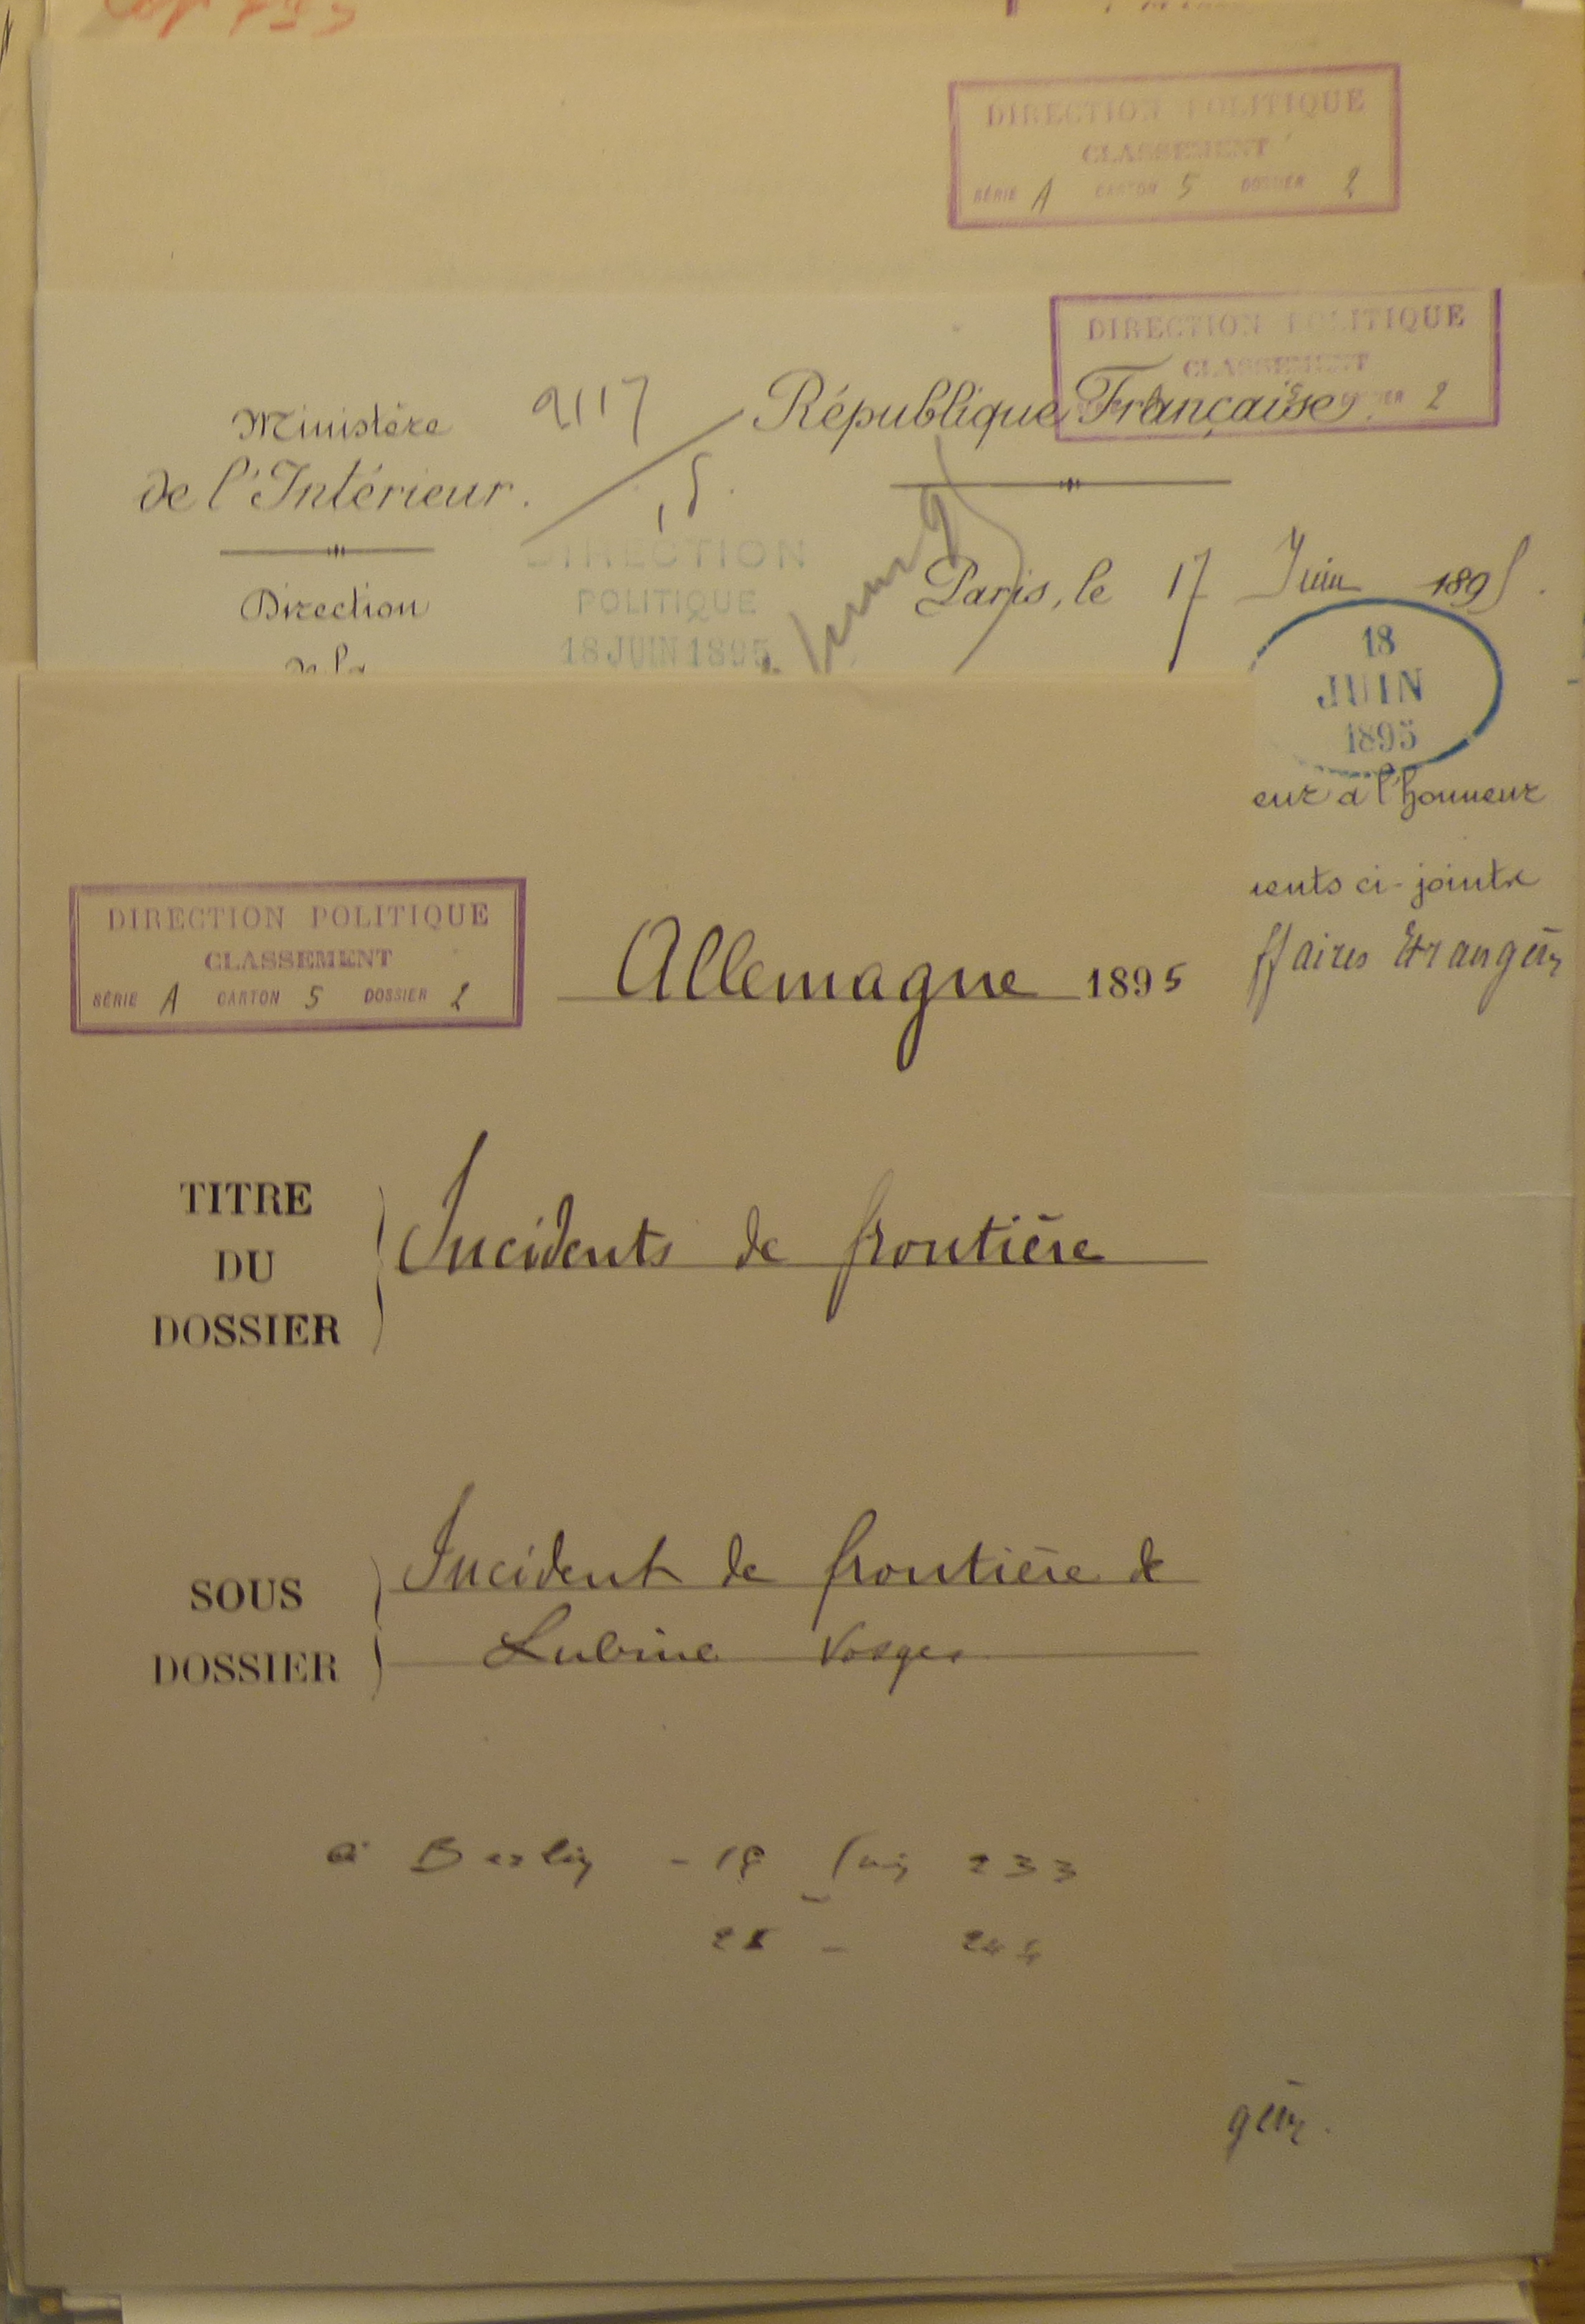 DIRECTION POLITIQUE
CLASSEMENT
SÉRIE A CARTON 5 DOSSIER 2
DIRECTION POLITIQUE
CLASSEMENT
DOSSIER 2
Ministère
de l'Intérieur.
République Française
Direction
de la
DIRECTION
POLITIQUE
18 JUIN 1895
Paris, le 17 Juin 1895.
18
JUIN
1895
eur a l'honneur
ents ci-jointe
ffaires Etrangères
DIRECTION POLITIQUE
CLASSEMENT
SÉRIE A CARTON 5 DOSSIER 2
Allemagne 1895
TITRE
DU
DOSSIER
Incidents de frontière
SOUS
DOSSIER
Incident de frontière de
Lubine Vosges
à Berlin - 19 Juin 233
25 - 244